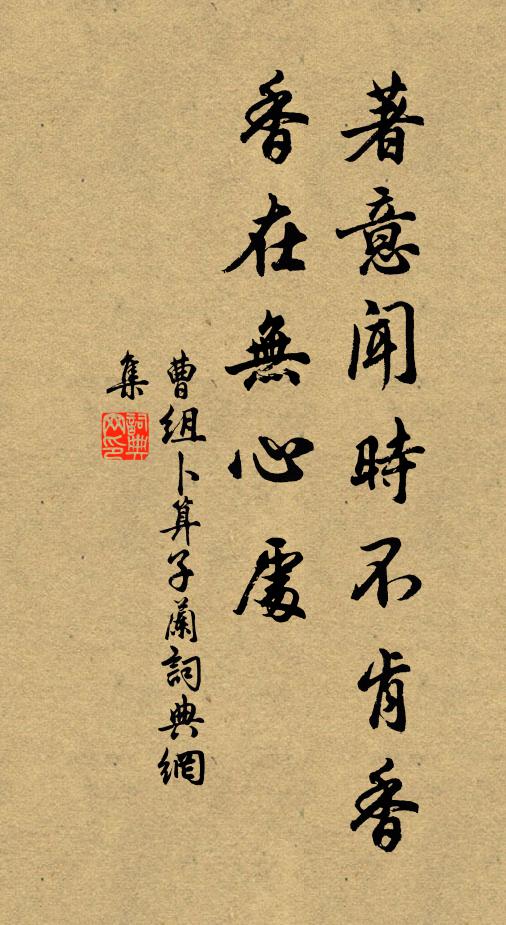 著意聞時不肯香
香在無心處
曹組卜算子蘭詞典網
集
詞典網印